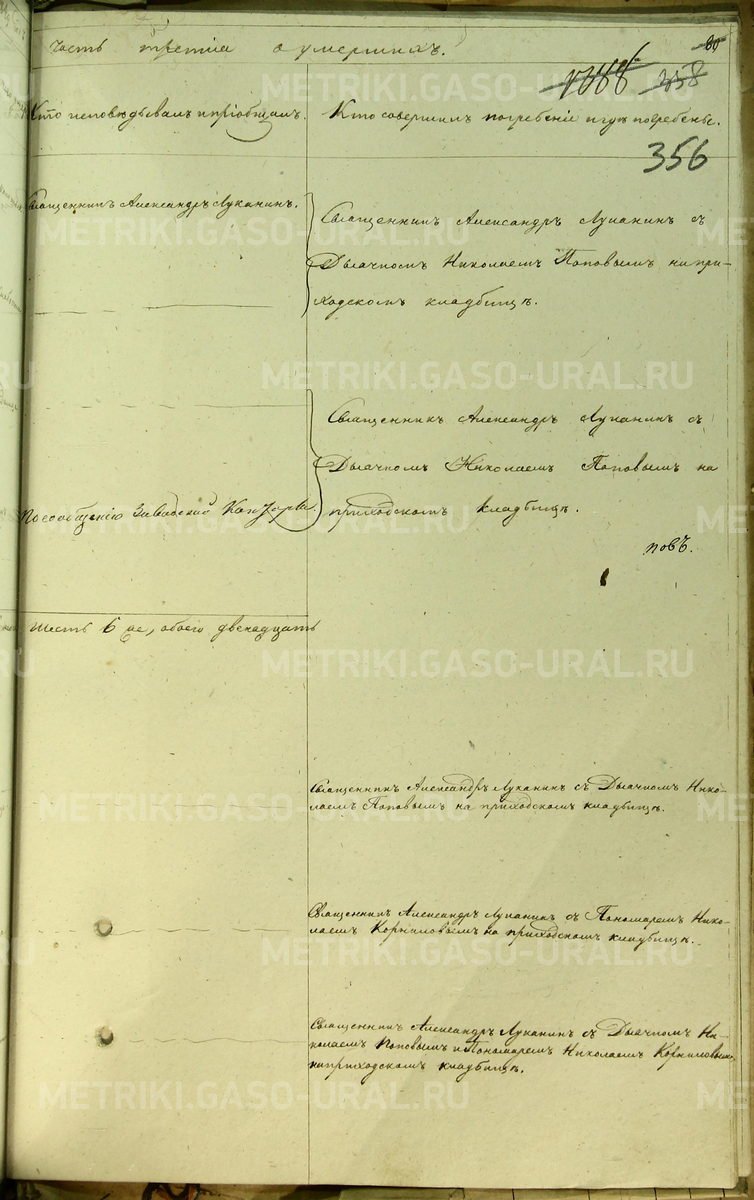 Часть третія о умершихъ.
80
1388 358
Кто исповѣдывалъ и пріобщалъ.
Кто совершилъ погребеніе и гдѣ погребены.
356
Священникъ Александръ Луканинъ.
Священникъ Александръ Луканинъ съ
Дьячкомъ Николаемъ Поповымъ на при-
ходскомъ кладбищѣ.
Священникъ Александръ Луканинъ съ
Дьячкомъ Николаемъ Поповымъ на
приходскомъ кладбищѣ.
По сообщенію Заводской Конторы.
повъ.
шесть 6 ть, обоего двенадцать
Священникъ Александръ Луканинъ съ Дьячкомъ Нико-
лаемъ Поповымъ на приходскомъ кладбищѣ.
Священникъ Александръ Луканинъ съ Пономаремъ Нико-
лаемъ Корниловымъ на приходскомъ кладбищѣ.
Священникъ Александръ Луканинъ съ Дьячкомъ Ни-
колаемъ Поповымъ и Пономаремъ Николаемъ Корниловымъ
на приходскомъ кладбищѣ.
METRIKI.GASO-URAL.RU